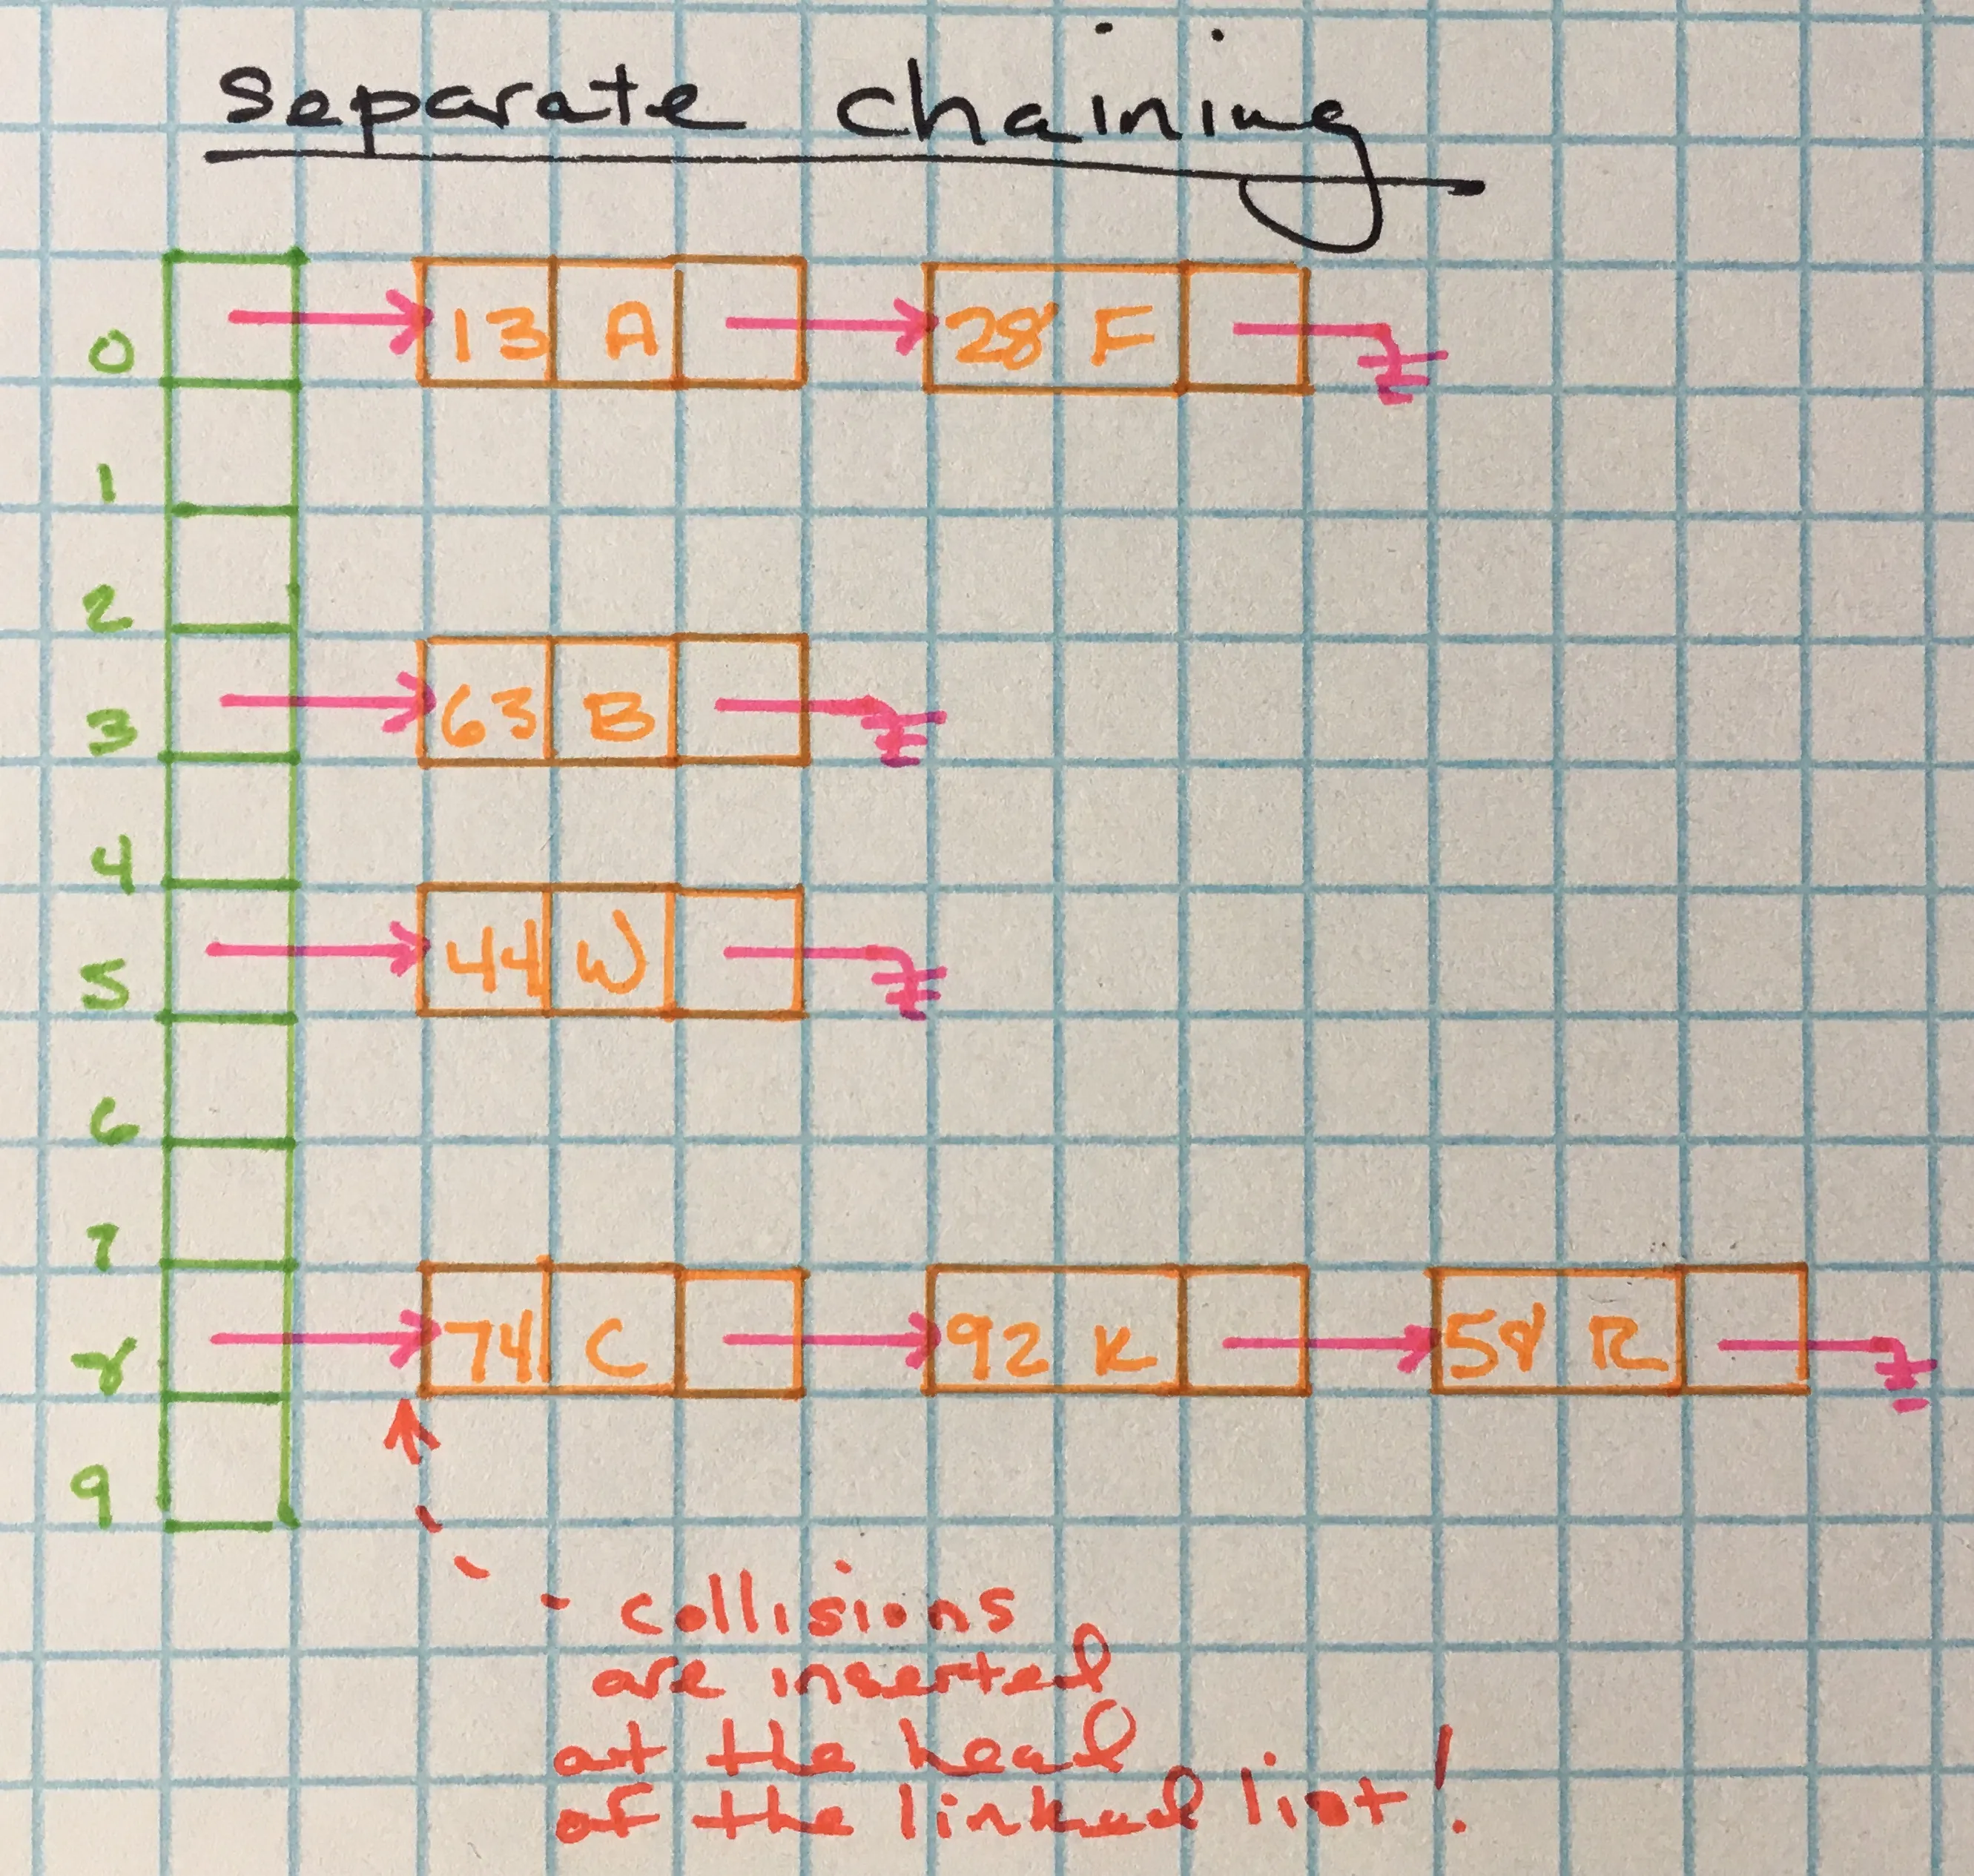 separate chaining
0 13 A 28 F
1
2
3 63 B
4
5 44 W
6
7
8 74 C 92 K 58 R
9
- collisions
are inserted
at the head
of the linked list!